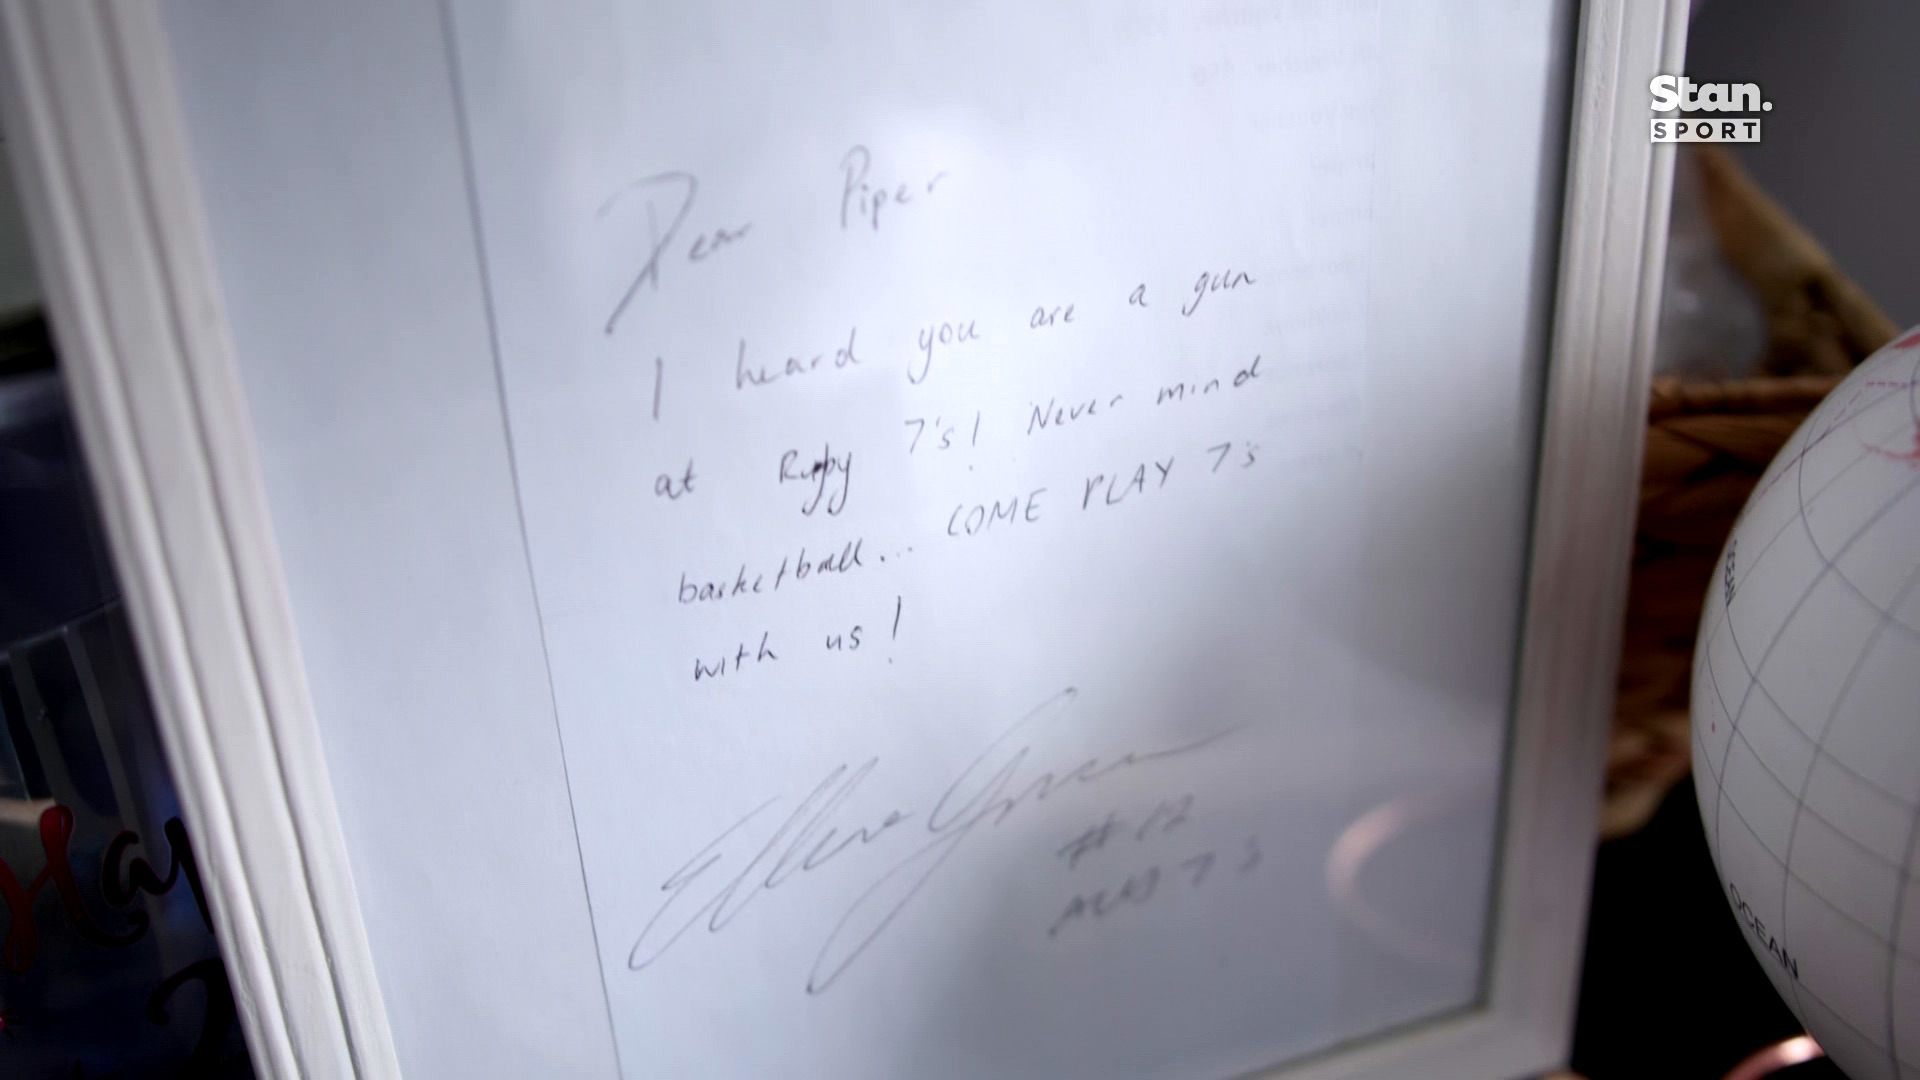 Stan.
SPORT
Dear Piper
I heard you are a gun
at Rugby 7's! Never mind
basketball... COME PLAY 7's
with us!
Ellia Green
#12
AUS 7's
OCEAN
OCEAN
Hap